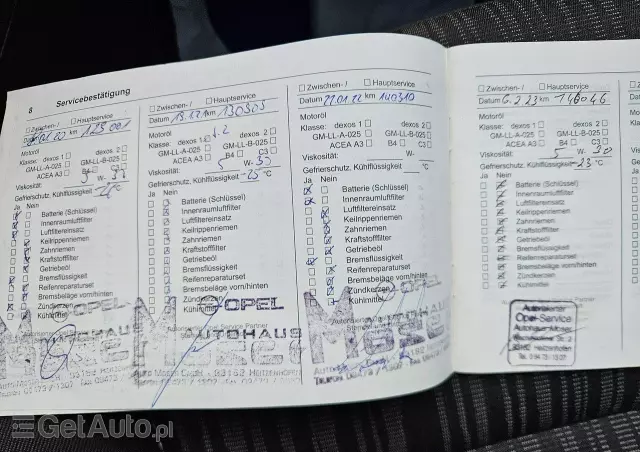 8 Servicebestätigung
☐ Zwischen- / ☐ Hauptservice
129001
Motoröl
Klasse: dexos 1 ☐ dexos 2 ☐
GM-LL-A-025 ☐ GM-LL-B-025 ☐
ACEA A3 ☐ B4 ☐ C3 ☐
Viskosität: W-
Gefrierschutz, Kühlflüssigkeit °C
Ja Nein
Batterie (Schlüssel)
Innenraumluftfilter
Luftfiltereinsatz
Keilrippenriemen
Zahnriemen
Kraftstofffilter
Getriebeöl
Bremsflüssigkeit
Reifenreparaturset
Bremsbeläge vorn/hinten
Zündkerzen
Kühlmittel
☐ Zwischen- / ☐ Hauptservice
Datum km 130305
Motoröl
Klasse: dexos 1 ☐
GM-LL-A-025 ☐ GM-LL-B-025 ☐
ACEA A3 ☐ B4 ☐ C3 ☐
Viskosität: 5 W- 30
Gefrierschutz, Kühlflüssigkeit -25 °C
Ja Nein
Batterie (Schlüssel)
Innenraumluftfilter
Luftfiltereinsatz
Keilrippenriemen
Zahnriemen
Kraftstofffilter
Getriebeöl
Bremsflüssigkeit
Reifenreparaturset
Bremsbeläge vorn/hinten
Zündkerzen
Kühlmittel
OPEL
AUTOHAUS
Moser
☐ Zwischen- / ☐ Hauptservice
Datum 21.01.22 km 140310
Motoröl
Klasse: dexos 1 ☐ dexos 2 ☐
GM-LL-A-025 ☐ GM-LL-B-025 ☐
ACEA A3 ☐ B4 ☐ C3 ☐
Viskosität: W-
Gefrierschutz, Kühlflüssigkeit °C
Ja Nein
Batterie (Schlüssel)
Innenraumluftfilter
Luftfiltereinsatz
Keilrippenriemen
Zahnriemen
Kraftstofffilter
Getriebeöl
Bremsflüssigkeit
Reifenreparaturset
Bremsbeläge vorn/hinten
Zündkerzen
Kühlmittel
OPEL
AUTOHAUS
Moser
☐ Zwischen- / ☐ Hauptservice
Datum 6.2.23 km 146046
Motoröl
Klasse: dexos 1 ☐ dexos 2 ☐
GM-LL-A-025 ☐ GM-LL-B-025 ☐
ACEA A3 ☐ B4 ☐ C3 ☐
Viskosität: 5 W- 30
Gefrierschutz, Kühlflüssigkeit -23 °C
Ja Nein
Batterie (Schlüssel)
Innenraumluftfilter
Luftfiltereinsatz
Keilrippenriemen
Zahnriemen
Kraftstofffilter
Getriebeöl
Bremsflüssigkeit
Reifenreparaturset
Bremsbeläge vorn/hinten
Zündkerzen
Kühlmittel
Autorisierter
Opel-Service
Autohaus Moser
GetAuto.pl